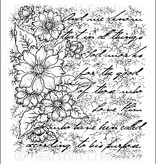 And we know
that in all things
God works
for the good
of those who
love him
who have been called
according to his purpose